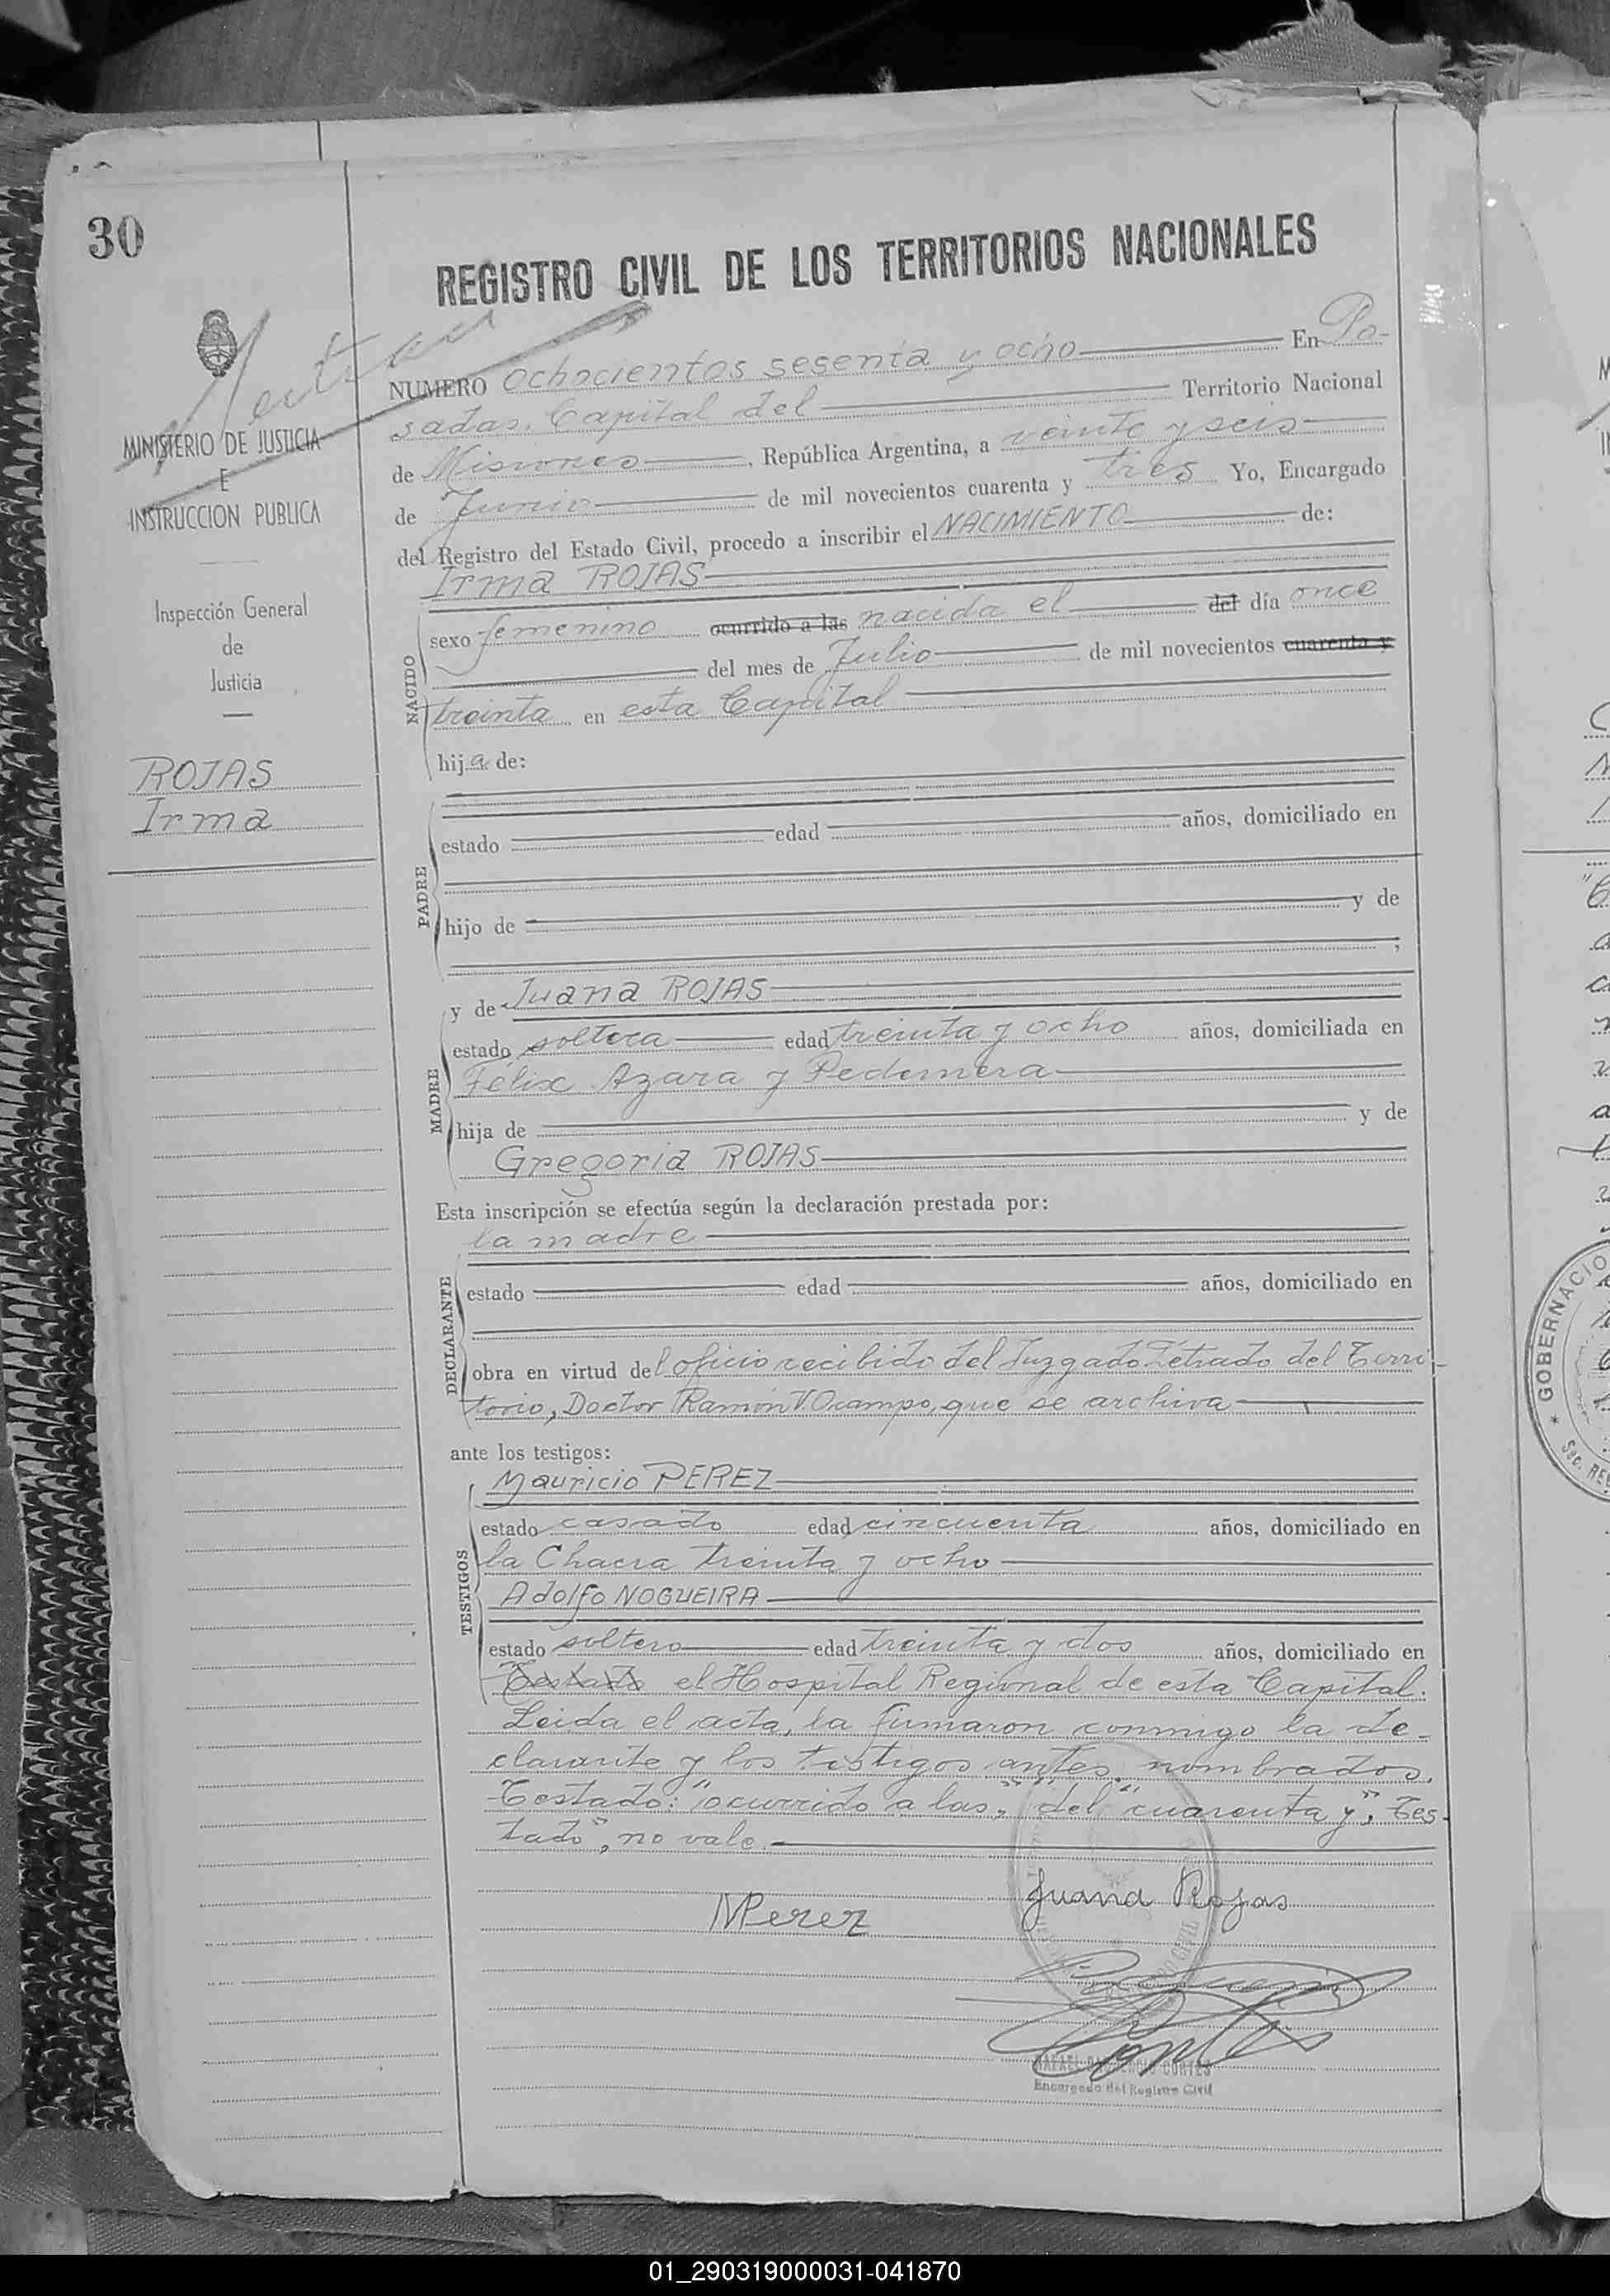 30
REGISTRO CIVIL DE LOS TERRITORIOS NACIONALES
MINISTERIO DE JUSTICIA
E
INSTRUCCION PUBLICA
Inspección General
de
Justicia
ROJAS
Irma
NUMERO ochocientos sesenta y ocho En Po-
sadas, Capital del Territorio Nacional
de Misiones, República Argentina, a veinte y seis
de Junio de mil novecientos cuarenta y tres Yo, Encargado
del Registro del Estado Civil, procedo a inscribir el NACIMIENTO de:
Irma ROJAS
NACIDO
sexo femenino ocurrido a las nacida el del día once
del mes de Julio de mil novecientos cuarenta y
treinta en esta Capital
hija de:
PADRE
estado edad años, domiciliado en
hijo de y de
,
MADRE
y de Juana ROJAS
estado soltera edad treinta y ocho años, domiciliada en
Félix Azara y Pedernera
hija de y de
Gregoria ROJAS
Esta inscripción se efectúa según la declaración prestada por:
la madre
DECLARANTE
estado edad años, domiciliado en
obra en virtud del oficio recibido del Juzgado Letrado del Terri-
torio, Doctor Ramón V. Ocampo, que se archiva
ante los testigos:
TESTIGOS
Mauricio PEREZ
estado casado edad cincuenta años, domiciliado en
la Chacra treinta y ocho
Adolfo NOGUEIRA
estado soltero edad treinta y dos años, domiciliado en
Testado el Hospital Regional de esta Capital.
Leida el acta, la firmaron conmigo la de-
clarante y los testigos antes nombrados.
Testado: "ocurrido a las", "del" "cuarenta y", Tes-
tado", no vale.
MPerez
Juana Rojas
CORTES
Encargado del Registro Civil
GOBERNACIO
01_290319000031-041870